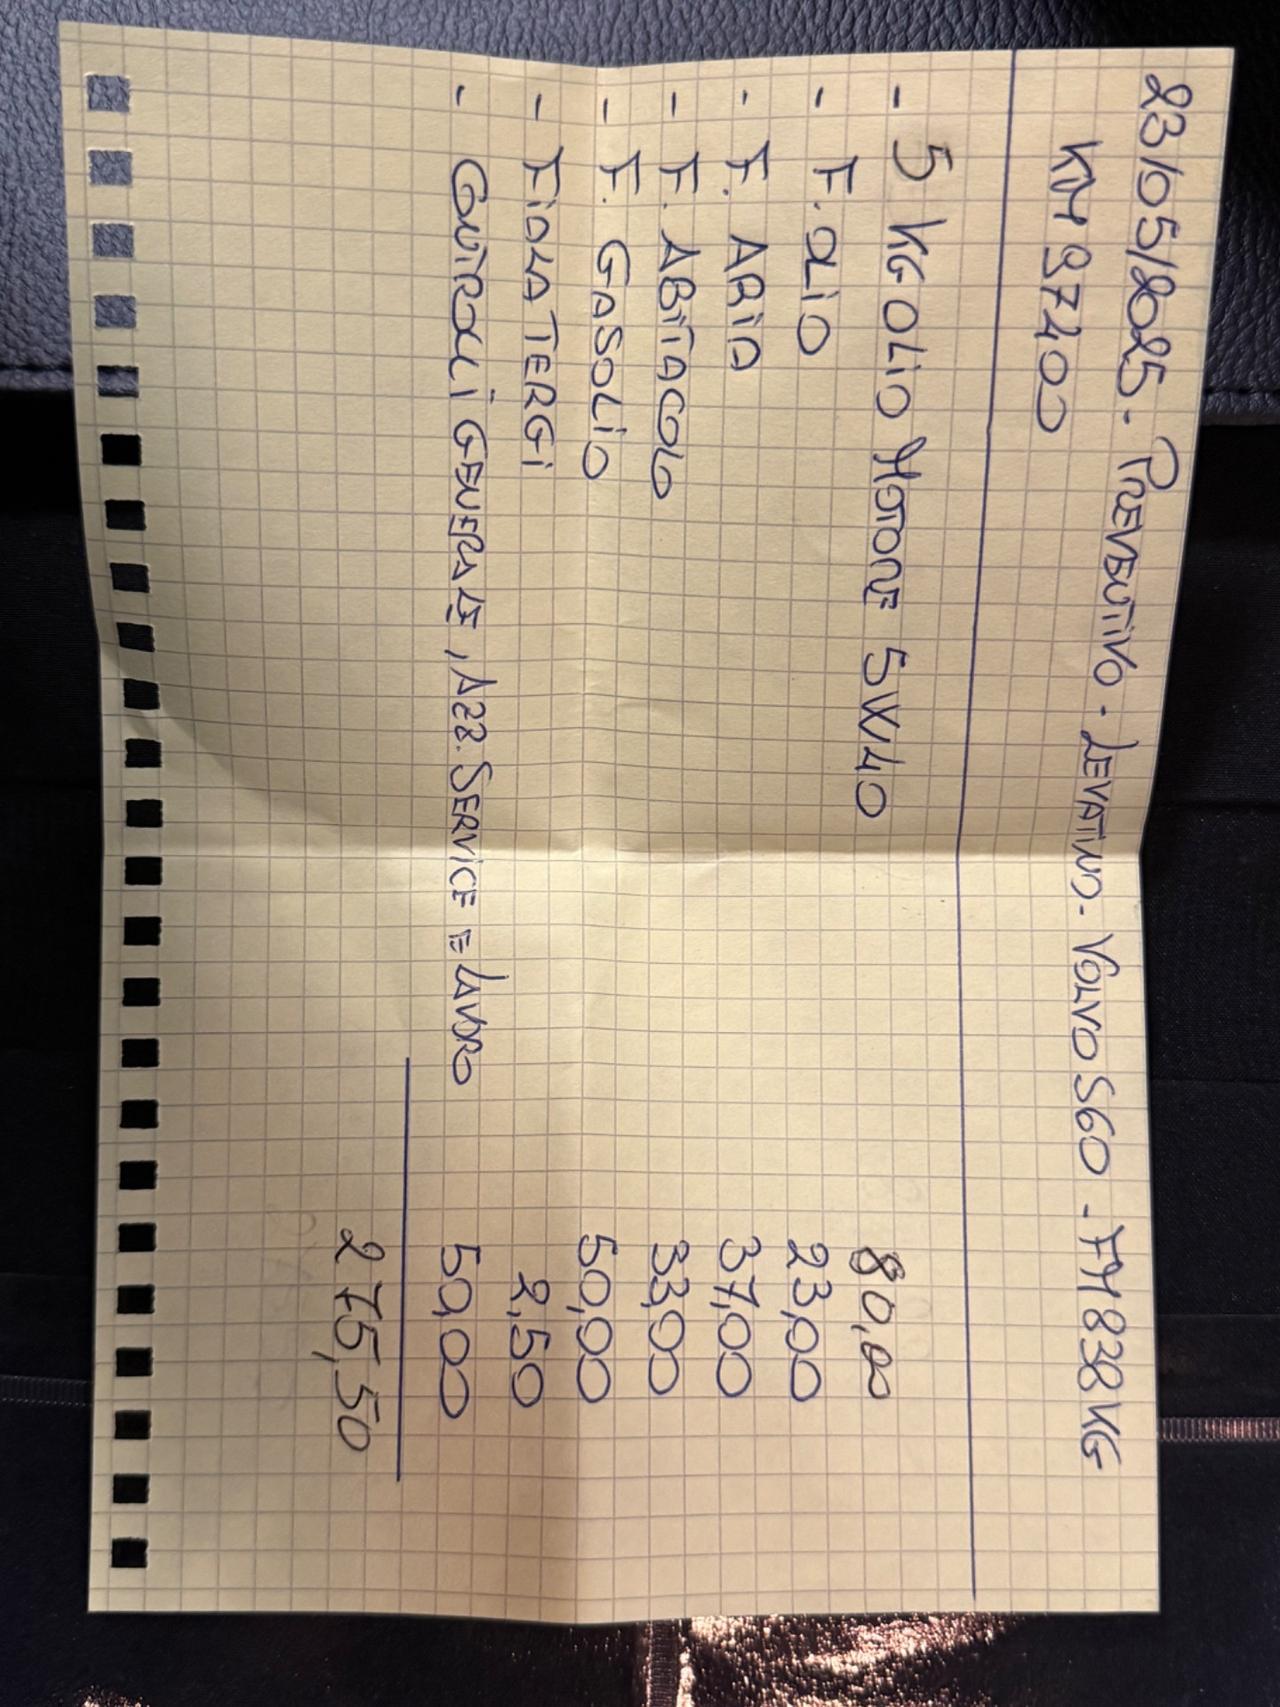 23/05/2025 - PREVENTIVO - LEVATINO - VOLVO S60 - FM838KG
KM 97400
- 5 KG OLIO MOTORE 5W40 80,00
- F. OLIO 23,00
- F. ARIA 37,00
- F. ABITACOLO 33,00
- F. GASOLIO 50,00
- FIALA TERGI 2,50
- CONTROLLI GENERALE, AZZ. SERVICE E LAVORO 50,00
275,50